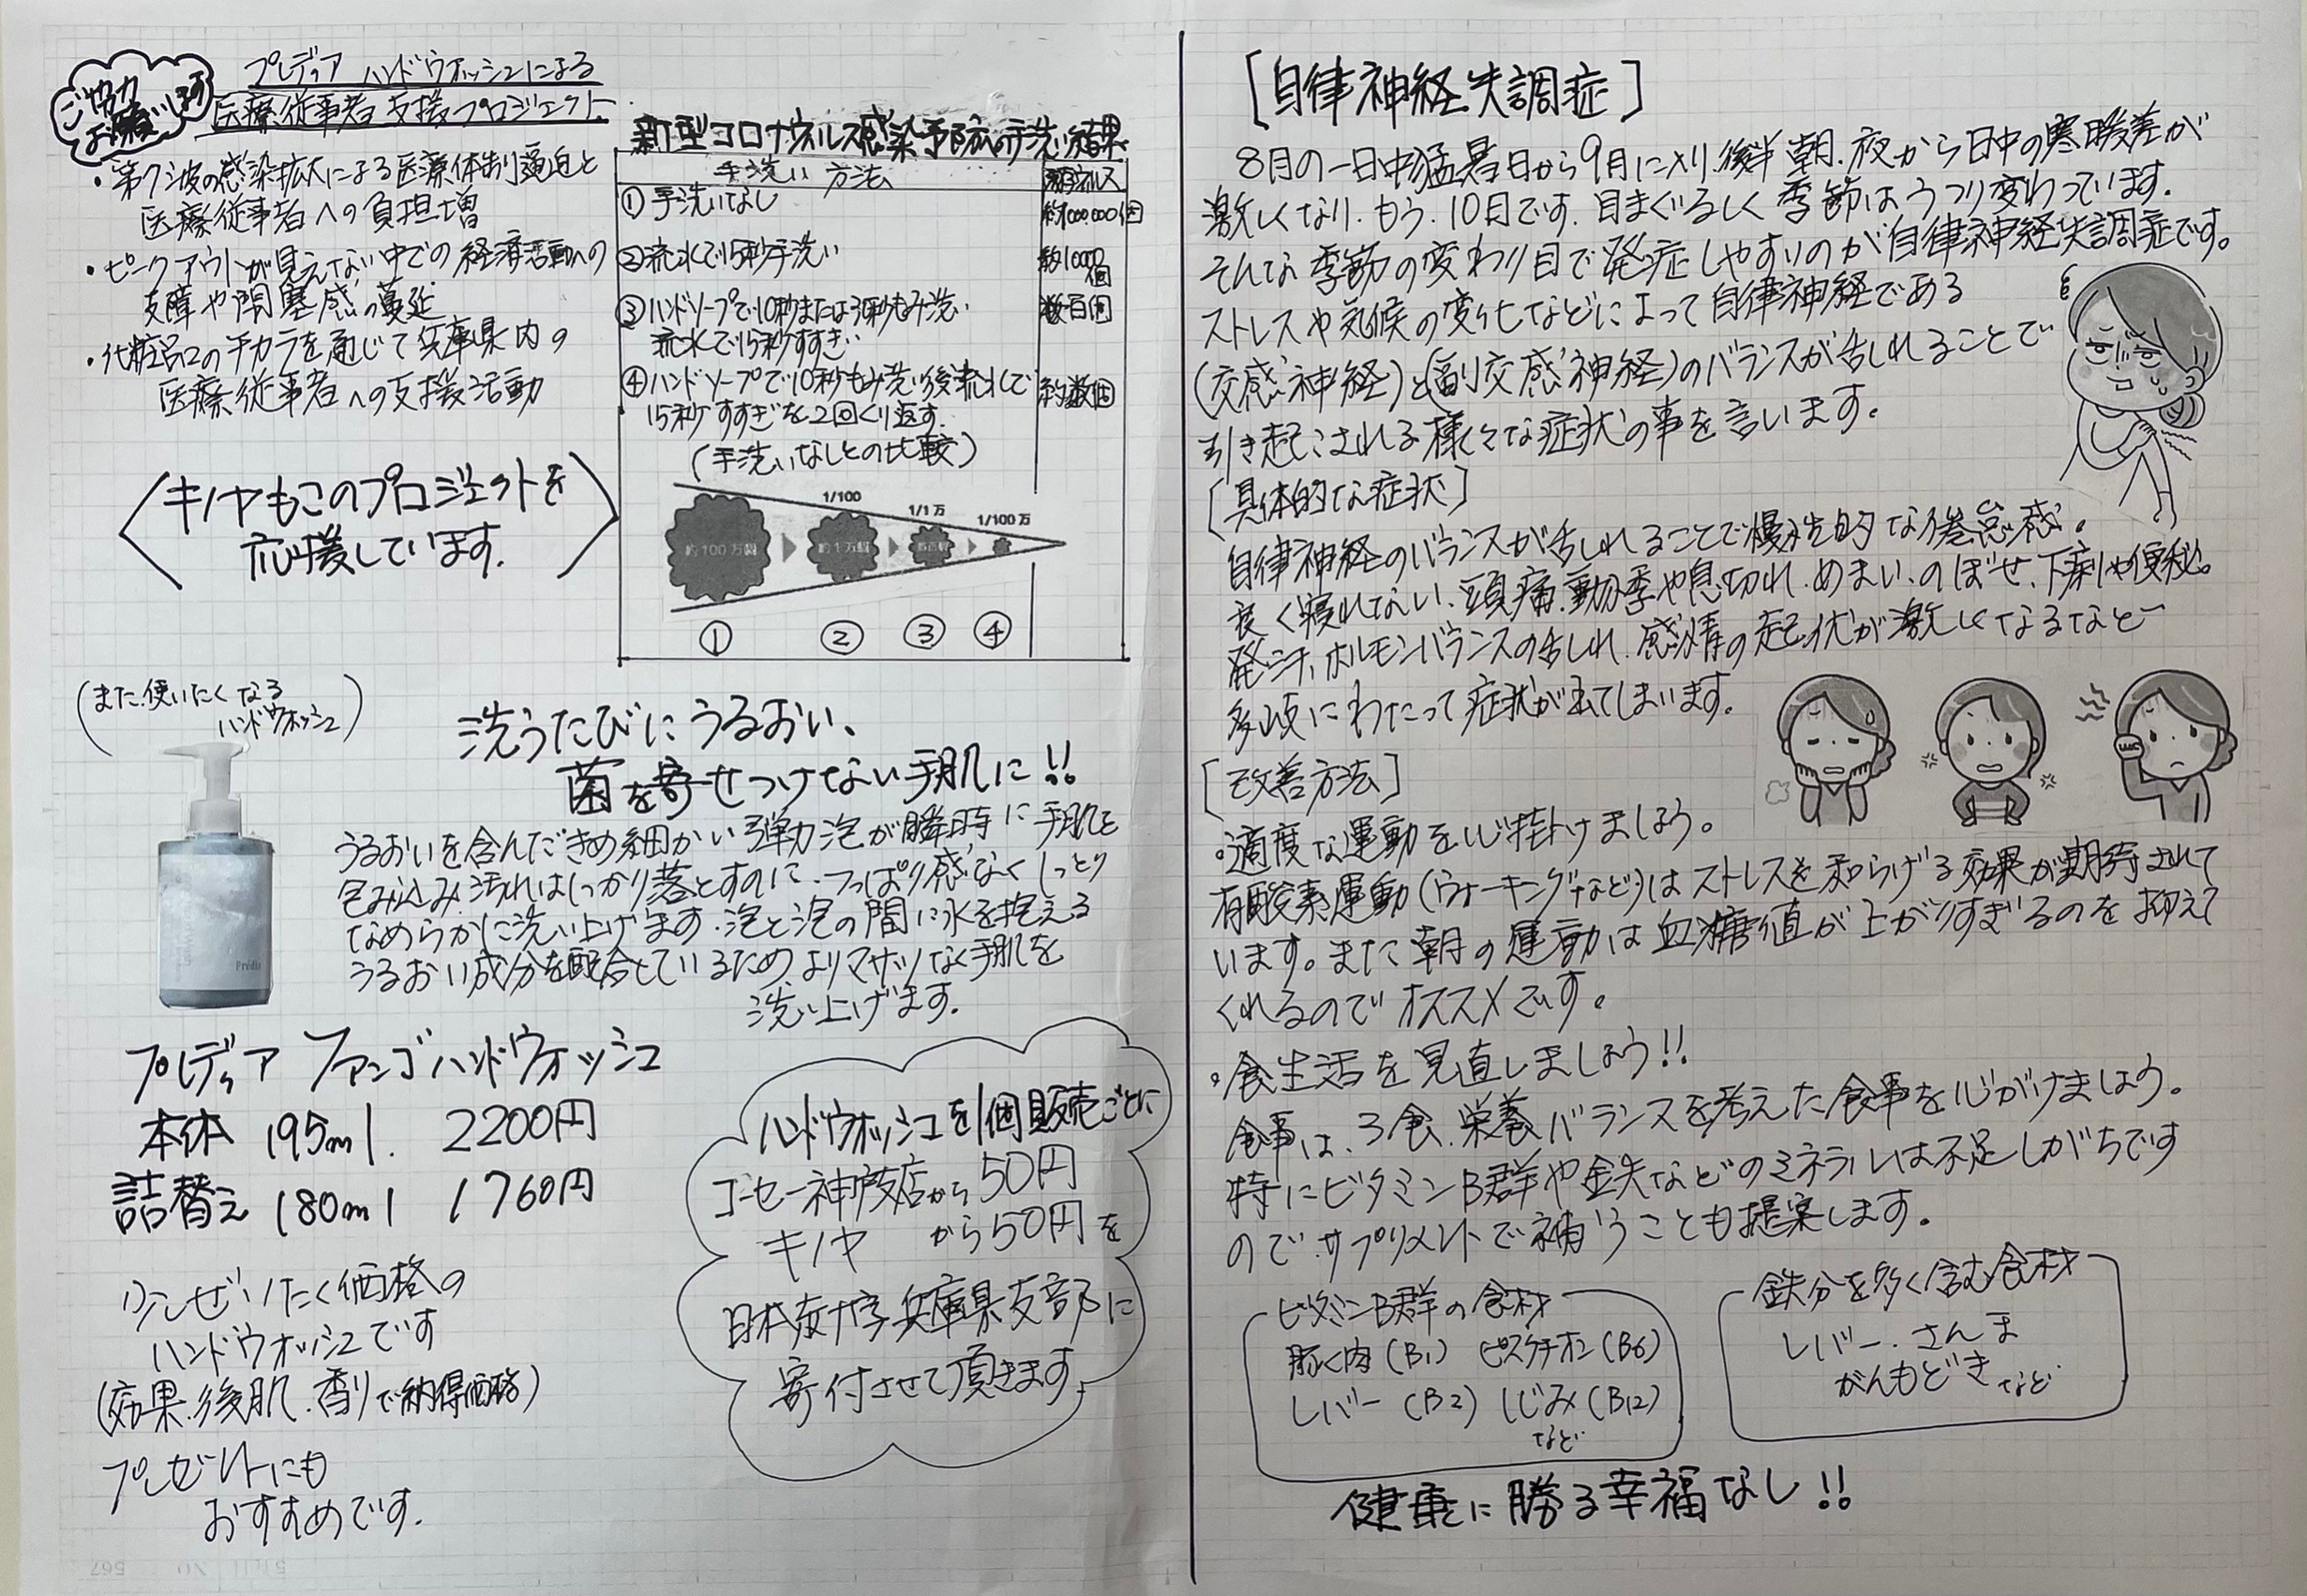 ご協力
お願いします
プレディア ハンドウォッシュによる
医療従事者支援プロジェクト
・第7波の感染拡大による医療体制逼迫と
医療従事者への負担増
・ピークアウトが見えない中での経済活動への
支障や閉塞感の蔓延
・化粧品のチカラを通じて兵庫県内の
医療従事者への支援活動
〈キノヤもこのプロジェクトを
応援しています.〉
新型コロナウイルス感染予防への手洗い効果
手洗い 方法
残存ウイルス
①手洗いなし
約1000.000個
②流水で15秒手洗い
約10000個
③ハンドソープで10秒または30秒もみ洗い
流水で15秒すすぎ
数百個
④ハンドソープで10秒もみ洗い後流水で
15秒すすぎを2回くり返す.
約数個
(手洗いなしとの比較)
1/100
1/1万
1/100万
約100万個
約1万個
数百個
① ② ③ ④
(また使いたくなる
ハンドウォッシュ)
洗うたびにうるおい、
菌を寄せつけない手肌に!!
Prédia
うるおいを含んだきめ細かい弾力泡が瞬時に手肌を
包み込み.汚れはしっかり落とすのに.つっぱり感なくしっとり
なめらかに洗い上げます.泡と泡の間に水を抱える
うるおい成分を配合しているためよりマサツなく手肌を
洗い上げます.
プレディア ファンゴハンドウォッシュ
本体 195ml. 2200円
詰替え 180ml 1760円
少しぜいたく価格の
ハンドウォッシュです
(効果.後肌.香りで納得価格)
プレゼントにも
おすすめです.
ハンドウォッシュを1個販売ごとに
コーセー神戸支店から50円
キノヤ から50円を
日本赤十字兵庫県支部に
寄付させて頂きます
[自律神経失調症]
8月の一日中猛暑日から9月に入り.後半朝.夜から日中の寒暖差が
激しくなり.もう.10月です.目まぐるしく季節はうつり変わっています.
そんな季節の変わり目で発症しやすいのが自律神経失調症です。
ストレスや気候の変化などによって自律神経である
(交感神経)と(副交感神経)のバランスが乱れることで
引き起こされる様々な症状の事を言います。
[具体的な症状]
自律神経のバランスが乱れることで慢性的な倦怠感。
良く寝れない、頭痛.動悸や息切れ.めまい.のぼせ、下痢や便秘。
発汗、ホルモンバランスの乱れ.感情の起伏が激しくなるなど
多岐にわたって症状が出てしまいます。
[改善方法]
・適度な運動を心掛けましょう。
有酸素運動(ウォーキングなど)はストレスを和らげる効果が期待されて
います。また朝の運動は血糖値が上がりすぎるのを抑えて
くれるのでオススメです。
・食生活を見直しましょう!!
食事は、3食.栄養バランスを考えた食事を心がけましょう。
特にビタミンB群や鉄などのミネラルは不足しがちです
ので.サプリメントで補うことも提案します。
ビタミンB群の食材
豚肉(B1) ピスタチオン(B6)
レバー(B2) しじみ(B12)
など
鉄分を多く含む食材
レバー.さんま
がんもどき など
健康に勝る幸福なし!!